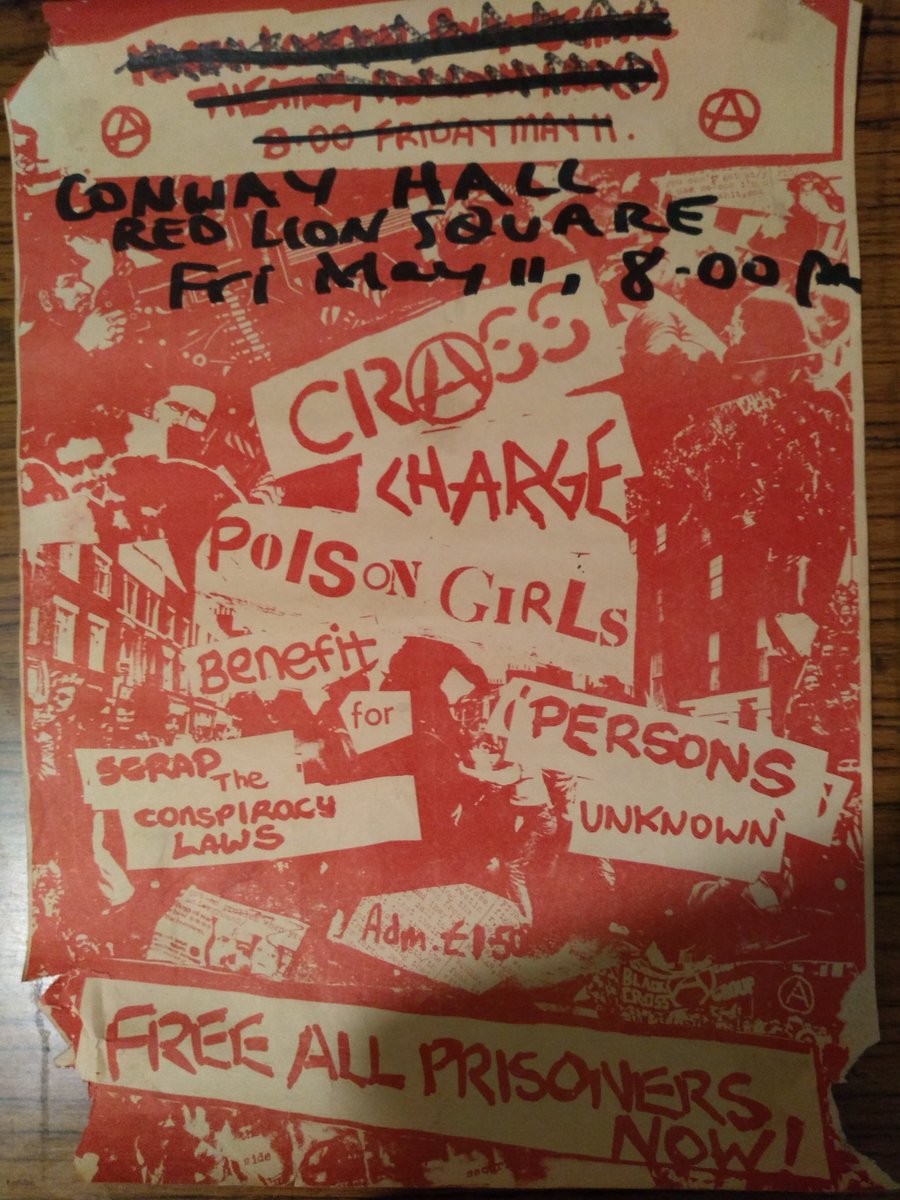 8.00 FRIDAY MAY 11.
CONWAY HALL
RED LION SQUARE
Fri May 11, 8.00 pm
CRASS
CHARGE
POISON GIRLS
Benefit
for
'PERSONS
UNKNOWN'
SCRAP The
CONSPIRACY
LAWS
Adm. £1.50
BLACK
CROSS
GROUP
FREE ALL PRISONERS
NOW!
side